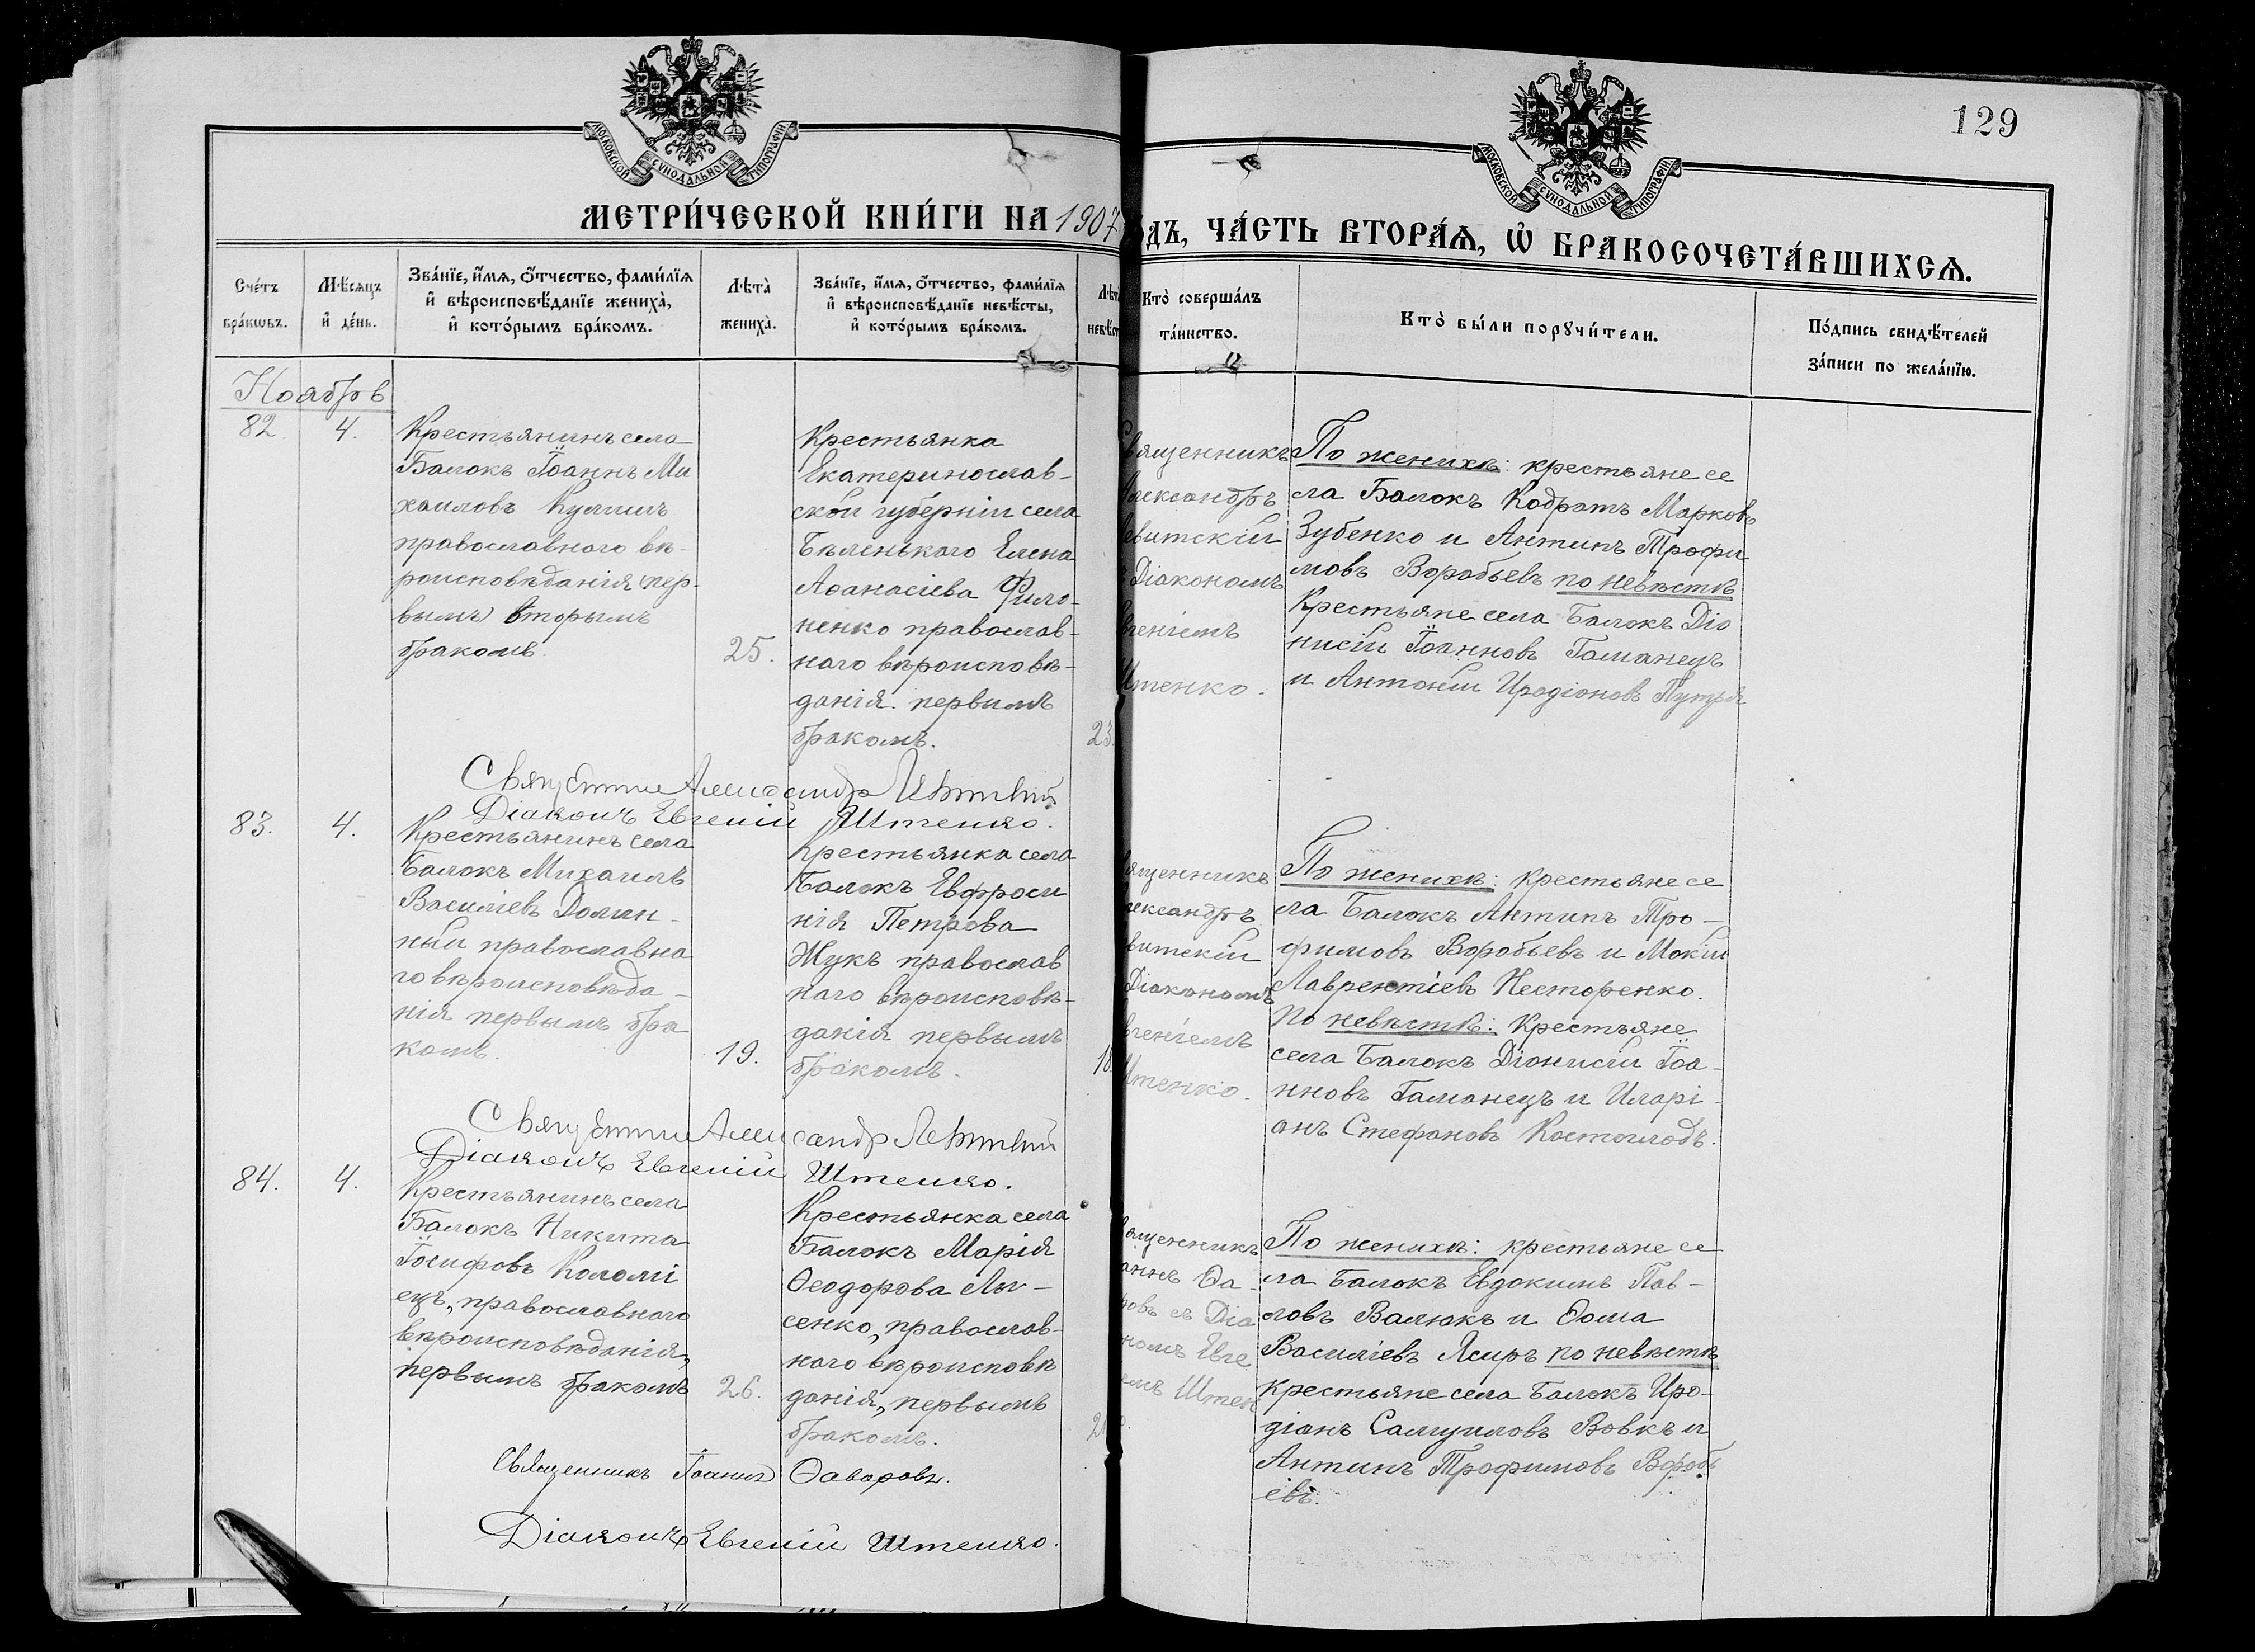 129
МОСКОВСКОЙ СѴНОДАЛЬНОЙ ТИПОГРАФІИ
МОСКОВСКОЙ СѴНОДАЛЬНОЙ ТИПОГРАФІИ
МЕТРИ́ЧЕСКОЙ КНИ́ГИ НА 1907
ДЪ, ЧА́СТЬ ВТОРА́Ѧ, Ѡ҆ БРАКОСОЧЕТА́ВШИХСѦ.
Сче́тъ
бра́кѡвъ.
Мѣ́сяцъ
и҆ де́нь.
Зва́нїе, и҆́мѧ, ѻ҆́тчество, фами́лїѧ
и҆ вѣроисповѣ́данїе жениха̀,
и҆ кото́рымъ бра́комъ.
Лѣта̀
жениха̀.
Зва́нїе, и҆́мѧ, ѻ҆́тчество, фами́лїѧ
и҆ вѣроисповѣ́данїе невѣ́сты,
и҆ кото́рымъ бра́комъ.
Кто̀ соверша́лъ
та́инство.
Кто̀ бы́ли порꙋчи́тели.
По́дпись свидѣ́телей
за́писи по жела́нїю.
Ноябрь
82.
4.
Крестьянинъ села
Балокъ Іоаннъ Ми
хаиловъ Кулишъ
православнаго вѣ-
роисповѣданія (пер-
вымъ) вторымъ
бракомъ.
25.
Крестьянка
Екатеринослав-
ской губерніи села
Бѣленькаго Елена
Аѳанасіева Фило-
ненко православ-
наго вѣроисповѣ-
данія. первымъ
бракомъ.
23.
Священникъ
Александръ
Левитскій
Діакономъ
Евгеніемъ
Штенко.
По женихѣ: крестьяне се
ла Балокъ Кодратъ Марковъ
Зубенко и Антипъ Трофи
мовъ Воробьевъ по невѣстѣ
Крестьяне села Балокъ Діо
нисій Іоанновъ Гаманецъ
и Антоній Иродіоновъ Путря
Священникъ Александръ Левитскій
Діаконъ Евгеній Штенко.
83.
4.
Крестьянинъ села
Балокъ Михаилъ
Василіевъ Долин-
ный православна
го вѣроисповѣда-
нія первымъ бра
комъ.
19.
Крестьянка села
Балокъ Евфроси
нія Петрова
Жукъ православ
наго вѣроисповѣ-
данія первымъ
бракомъ.
18.
ященникъ
лександръ
витскій
Діакономъ
вгеніемъ
Штенко.
По женихѣ: крестьяне се
ла Балокъ Антипъ Тро-
фимовъ Воробьевъ и Мокій
Лаврентіевъ Несторенко.
По невѣстѣ: Крестьяне
села Балокъ Діонисій Іоа-
нновъ Гаманецъ и Иларі-
анъ Стефановъ Костоглодъ.
Священникъ Александръ Левитскій
Діаконъ Евгеній Штенко.
84.
4.
Крестьянинъ села
Балокъ Никита
Іосифовъ Коломі
ецъ, православнаго
вѣроисповѣданія,
первымъ бракомъ
26.
Крестьянка села
Балокъ Марія
Ѳеодорова Лы-
сенко, православ-
наго вѣроисповѣ
данія, первымъ
бракомъ.
21
ященникъ
аннъ Ѳа-
ровъ съ Діа
номъ Евге
емъ Штен
о.
По женихѣ: крестьяне се
ла Балокъ Евдокимъ Пав-
ловъ Валюкъ и Ѳома
Василіевъ Ясиръ по невѣстѣ
крестьяне села Балокъ Иро-
діанъ Самуиловъ Вовкъ и
Антипъ Трофимовъ Вороб
евъ.
Священникъ Іоаннъ Ѳаворовъ.
Діаконъ Евгеній Штенко.